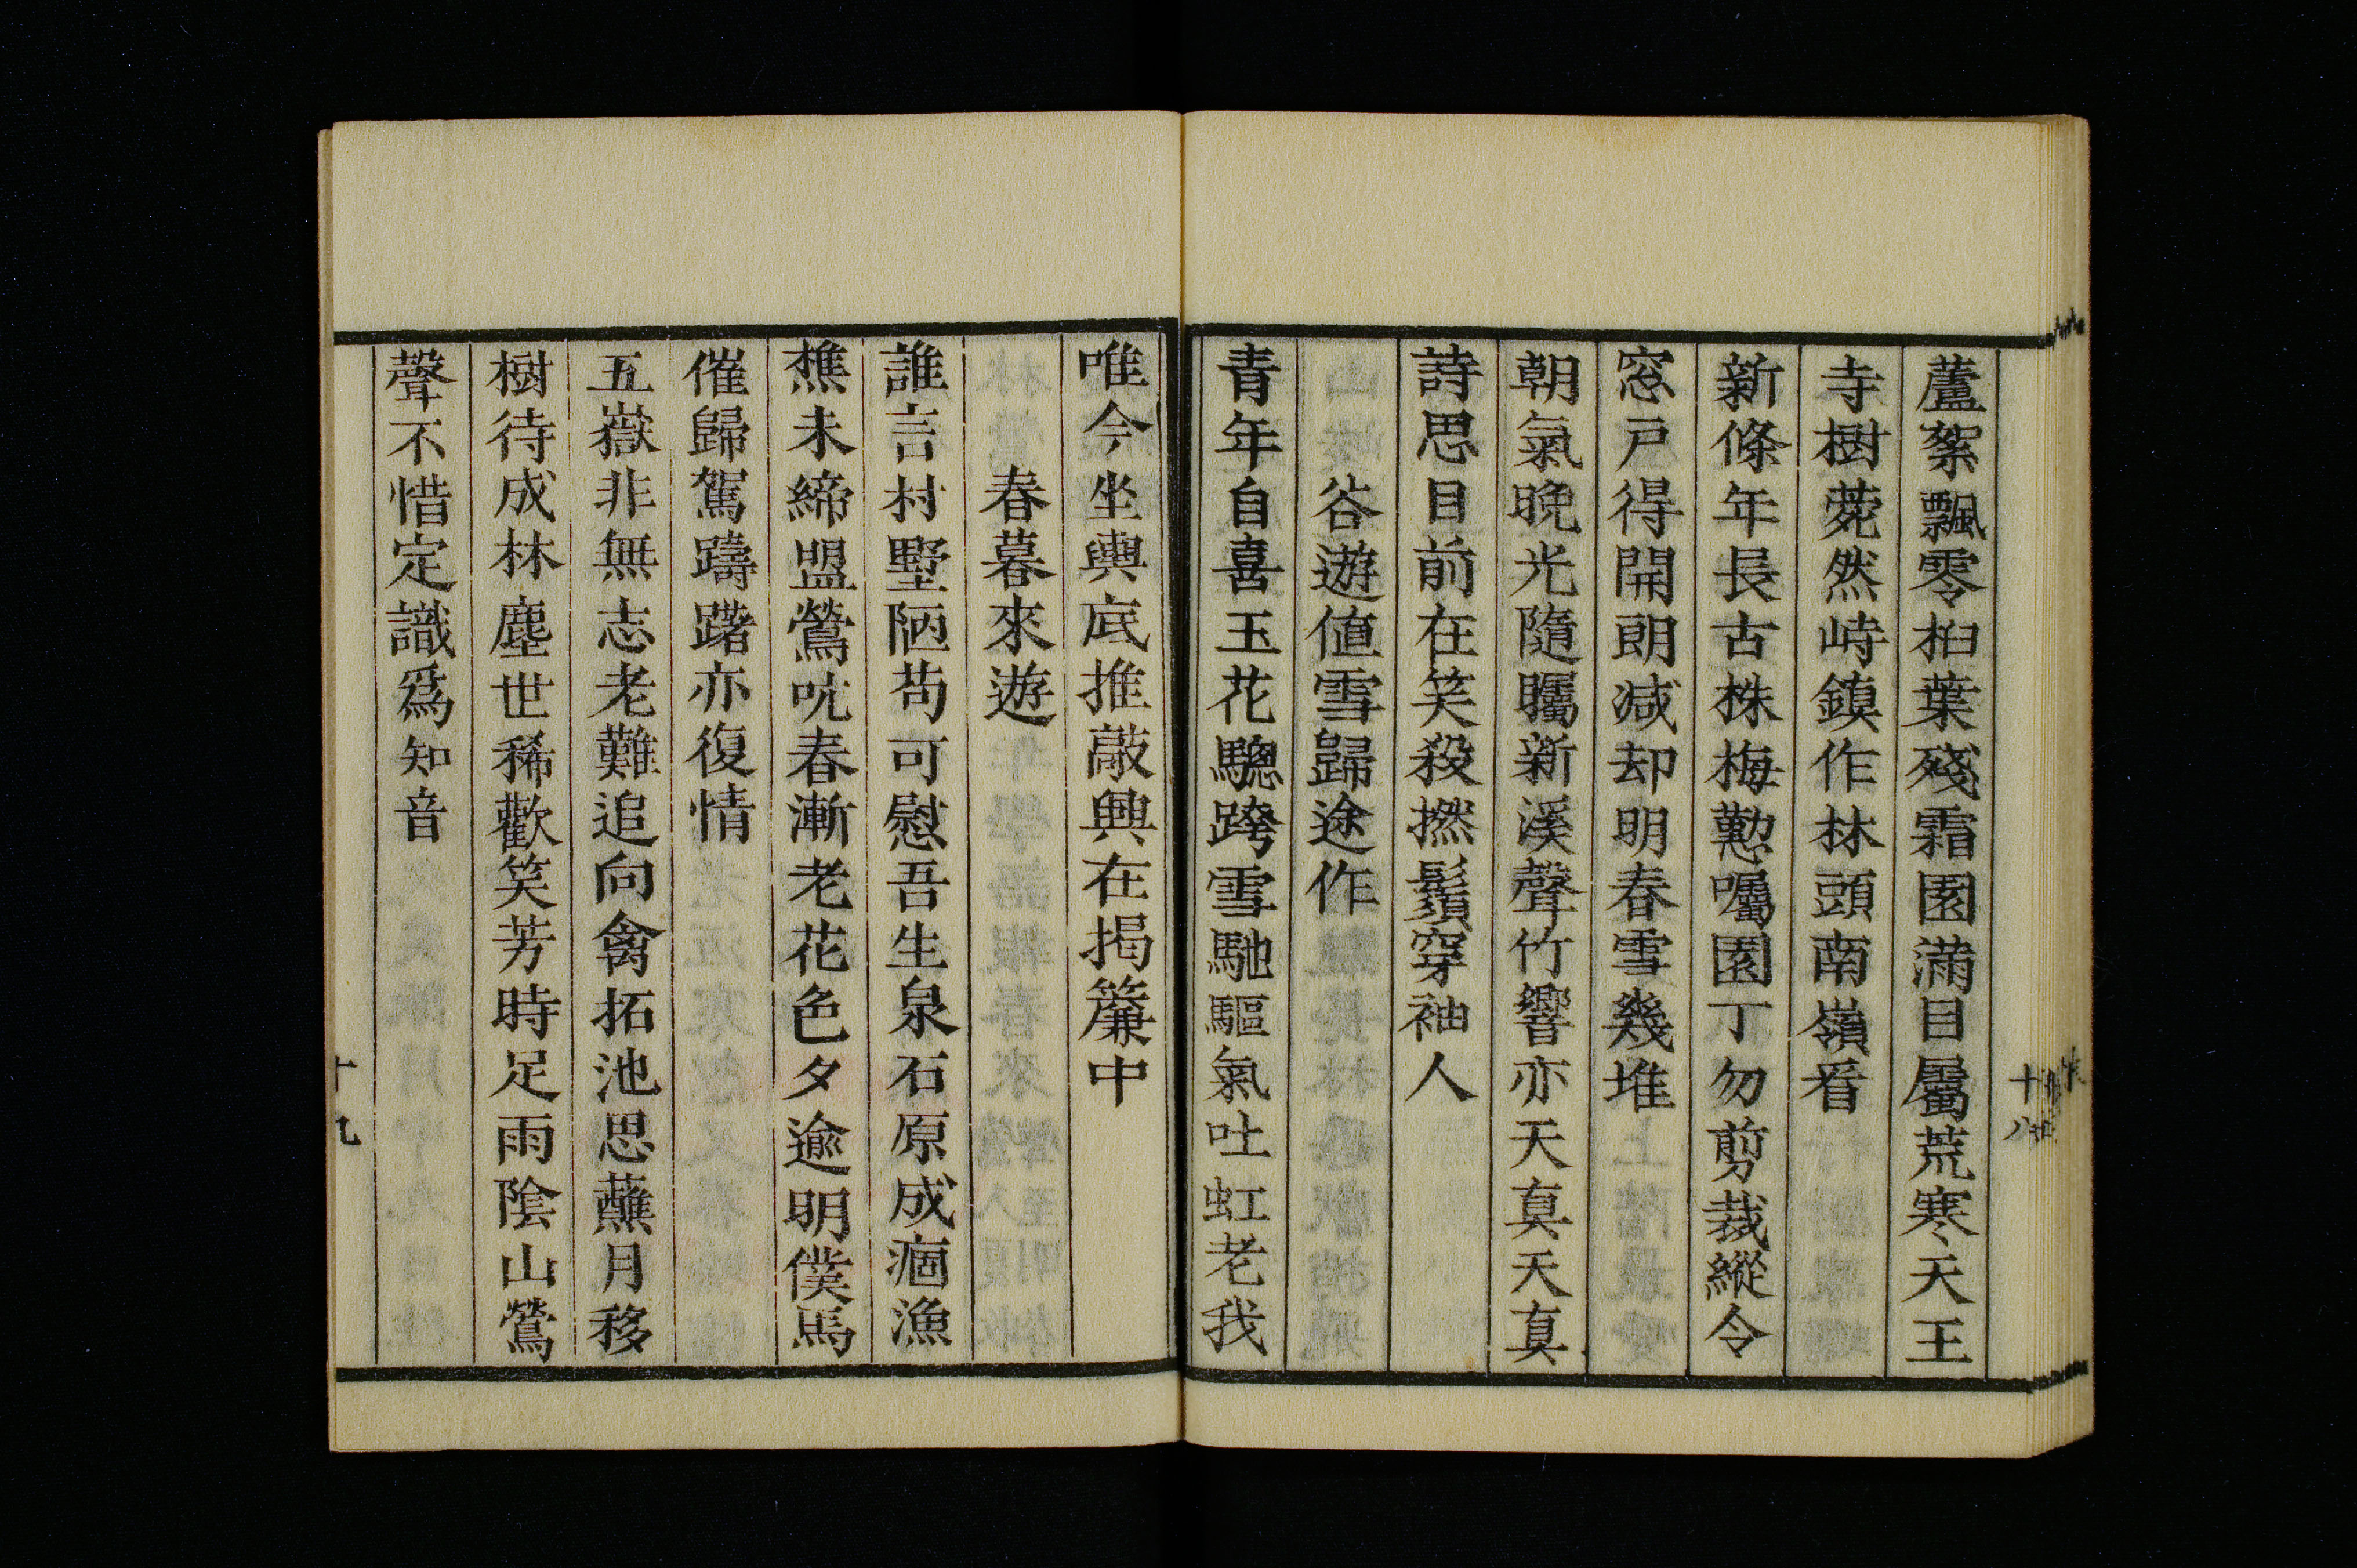 蘆絮飄零桕葉殘霜園滿目屬荒寒天王
寺樹蒬然峙鎮作林頭南嶺看
新條年長古株梅懃囑園丁勿剪裁縱令
窓戸得開朗减却明春雪幾堆
朝氣晚光隨矚新溪聲竹響亦天真天真
詩思目前在笑殺撚鬚穿袖人
谷遊値雪歸途作
青年自喜玉花驄跨雪馳驅氣吐虹老我
十八
唯今坐輿底推敲興在揭簾中
春暮來遊
誰言村墅陋苟可慰吾生泉石原成痼漁
樵未締盟鶯吭春漸老花色夕逾明僕馬
催歸駕躊躇亦復情
五嶽非無志老難追向禽拓池思蘸月移
樹待成林塵世稀歡笑芳時足雨陰山鶯
聲不惜定識爲知音
十九